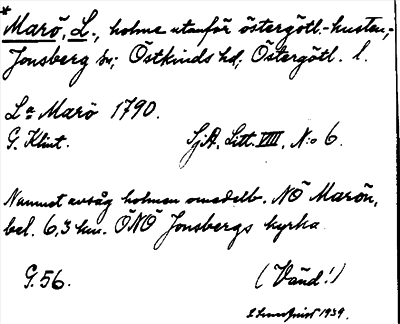 * Marö, L., holme utanför östergötl.-kusten,
Jonsberg sn; Östkinds hd; Östergötl. l.
La Marö 1790.
G. Klint. SjA, Litt. VIII, No 6.
Namnet avsåg holmen omedelb. NÖ Marön,
bel. 6,3 km. ÖNÖ Jonsbergs kyrka
G. 56. (Vänd!)
1939.